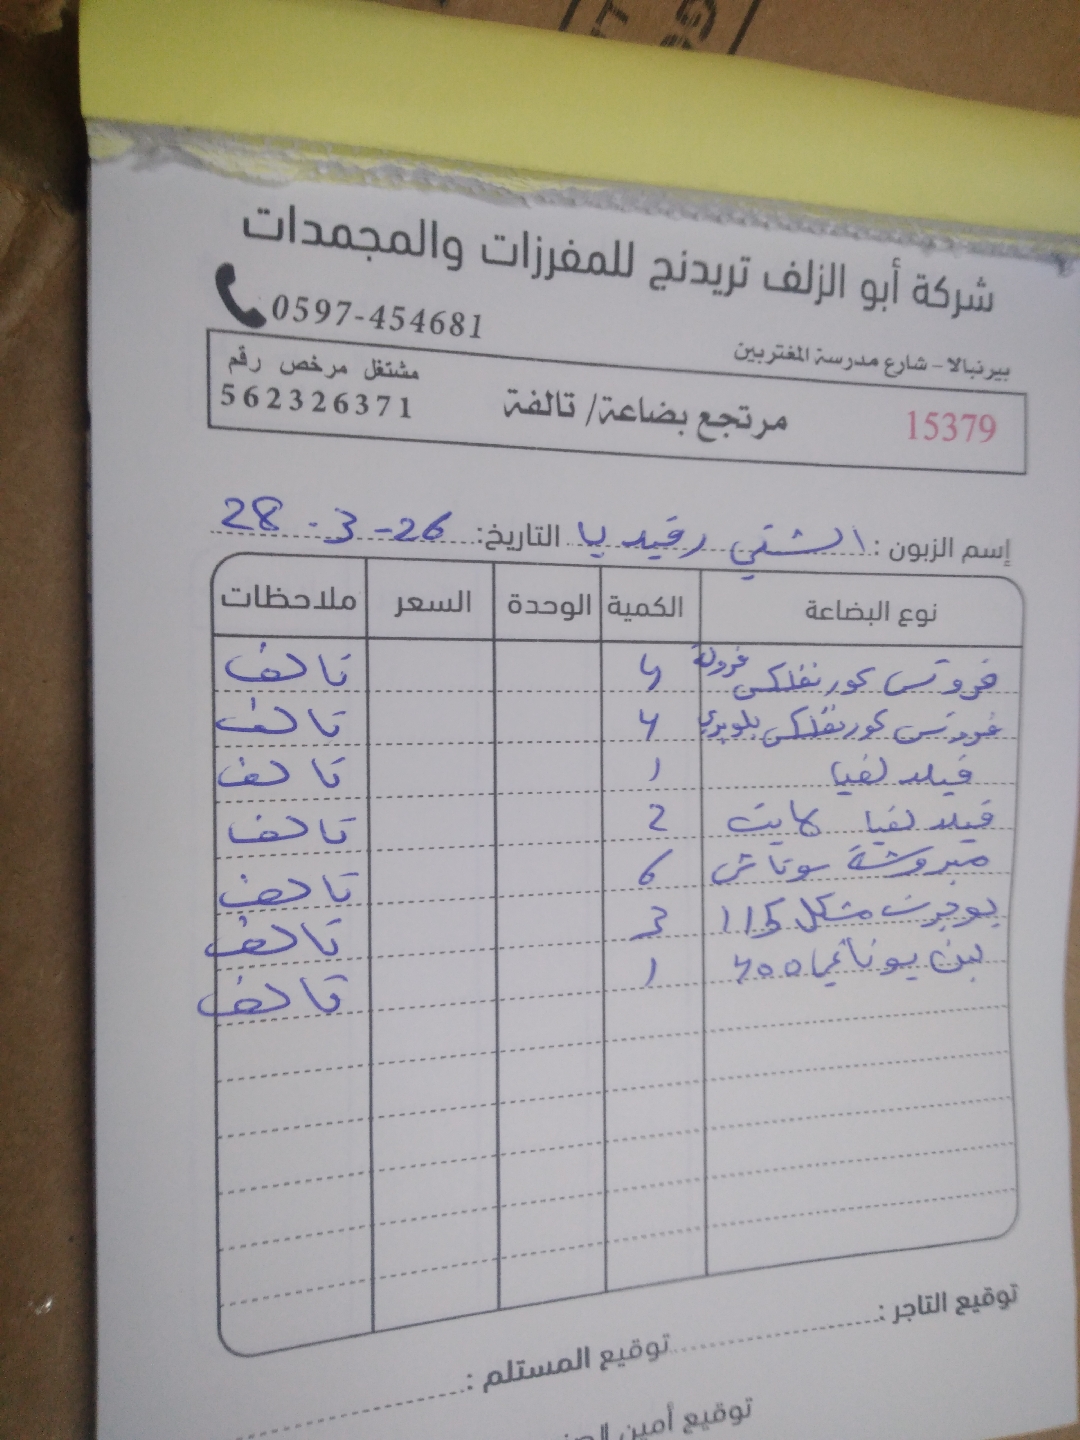 شركة أبو الزلف تريدنج للمفرزات والمجمدات
0597-454681
بيرنبالا - شارع مدرسة المغتربين
مشتغل مرخص رقم
562326371
مرتجع بضاعة/ تالفة
15379
إسم الزبون: الشني رفيديا التاريخ: 28.3-26
نوع البضاعة الكمية الوحدة السعر ملاحظات
فروتس كورنفلكس فرولة 4 تالف
فروتس كورنفلكس بلوبري 4 تالف
فيلدلفيا 1 تالف
فيلدلفيا لايت 2 تالف
مبروشة سوتاش 6 تالف
يوجرت مشكل 115 3 تالف
لبن يوناني 400 1 تالف
توقيع التاجر:
توقيع المستلم:
توقيع أمين